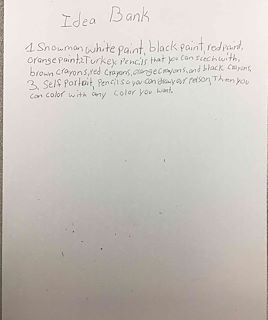 Idea Bank
1. Snowman white paint, black paint, red paint,
orange paint 2. Turkey: Pencils that you can scech with,
brown crayons, red crayons, orange crayons, and black crayons,
3. Self Portrait, Pencil so you can draw your person, Then you
can color with any color you want.